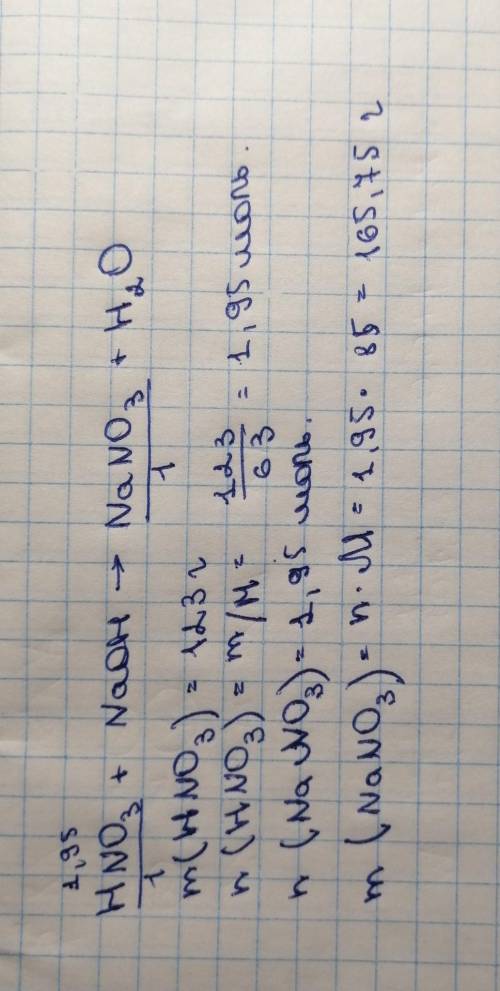 1,95
HNO₃ + NaOH → NaNO₃ + H₂O
1 1
m(HNO₃) = 123 г
n(HNO₃) = m/M = 123/63 = 1,95 моль.
n(NaNO₃) = 1,95 моль.
m(NaNO₃) = n · M = 1,95 · 85 = 165,75 г